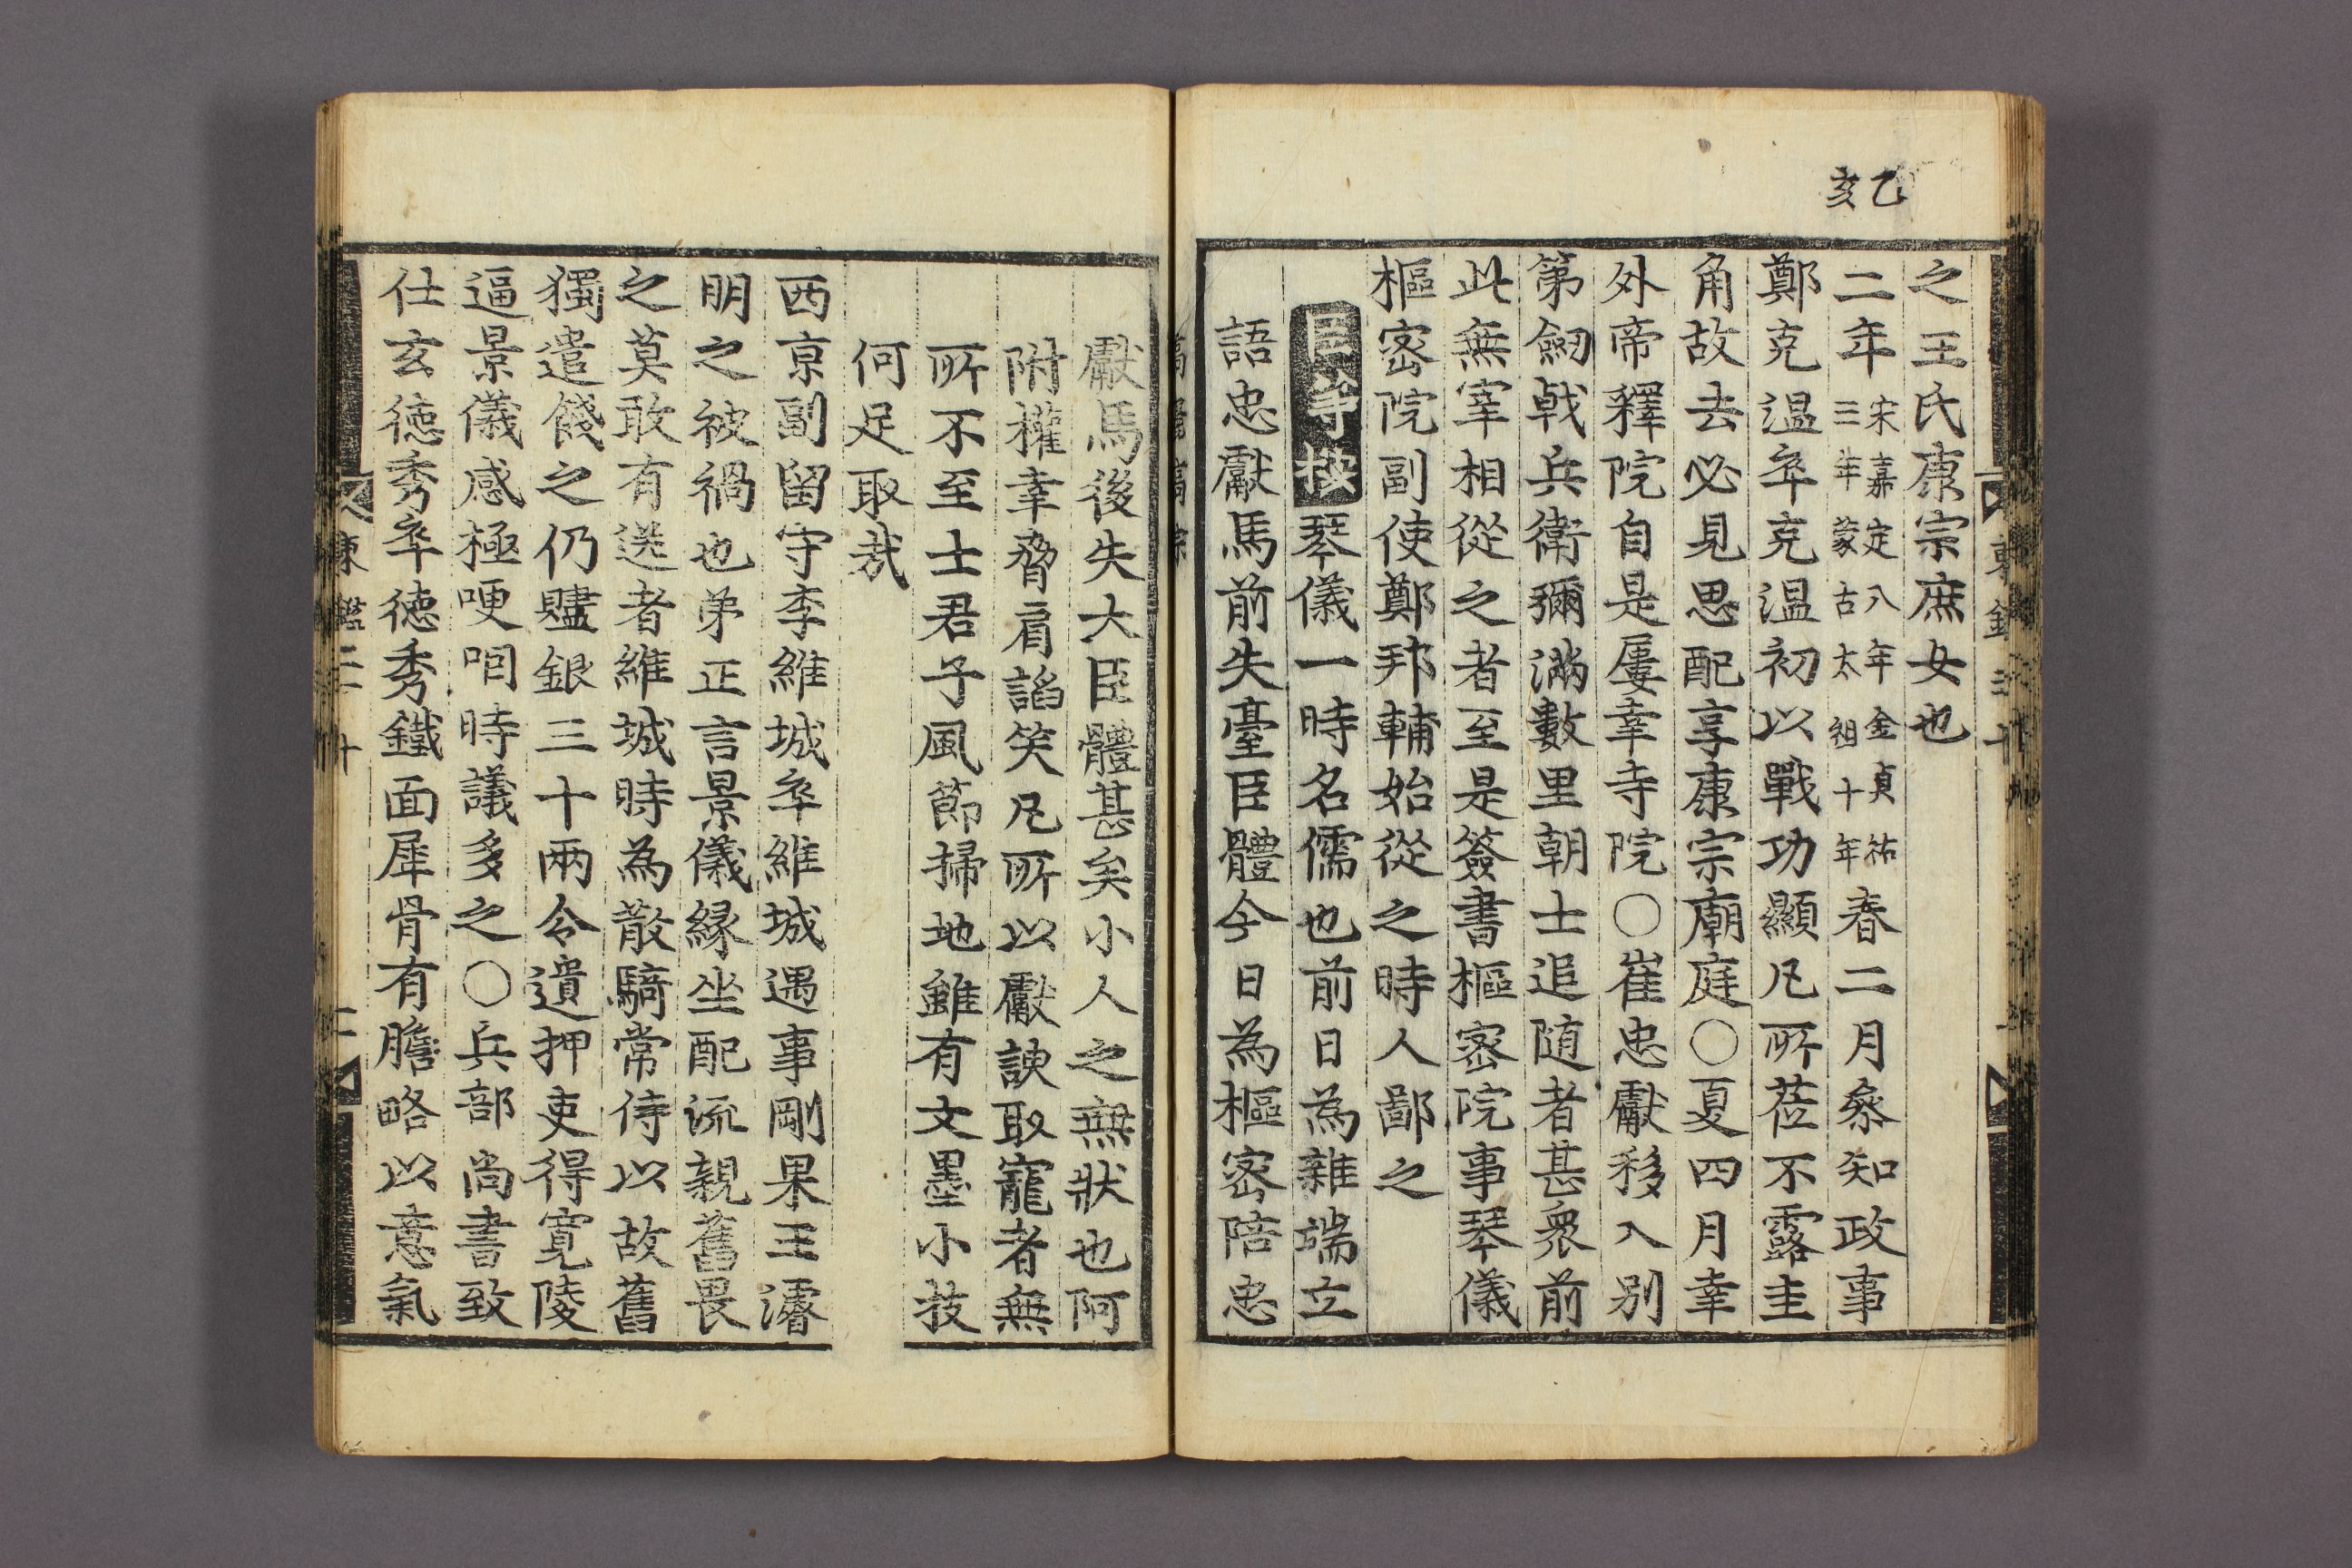 乙亥
之王氏康宗庶女也
二年宋嘉定八年金貞祐三年蒙古太祖十年春二月叅知政事
鄭克温卒克温初以戰功顯凡所莅不露圭
角故去必見思配享康宗廟庭○夏四月幸
外帝釋院自是屢幸寺院○崔忠獻移入別
第劒戟兵衛彌滿數里朝士追随者甚衆前
此無宰相從之者至是簽書樞密院事琴儀
樞密院副使鄭邦輔始從之時人鄙之
臣等按琴儀一時名儒也前日為雜端立
語忠獻馬前失臺臣體今日為樞密陪忠
獻馬後失大臣體甚矣小人之無狀也阿
附權幸脅肩諂笑凡所以獻諛取寵者無
所不至士君子風節掃地雖有文墨小技
何足取哉
西京副留守李維城卒維城遇事剛果王濬
明之被禍也弟正言景儀緣坐配流親舊畏
之莫敢有送者維城時為散騎常侍以故舊
獨遣餞之仍贐銀三十兩令遺押吏得寬陵
逼景儀感極哽咽時議多之○兵部尚書致
仕玄德秀卒德秀鐵面犀骨有膽略以意氣
東鑑三十